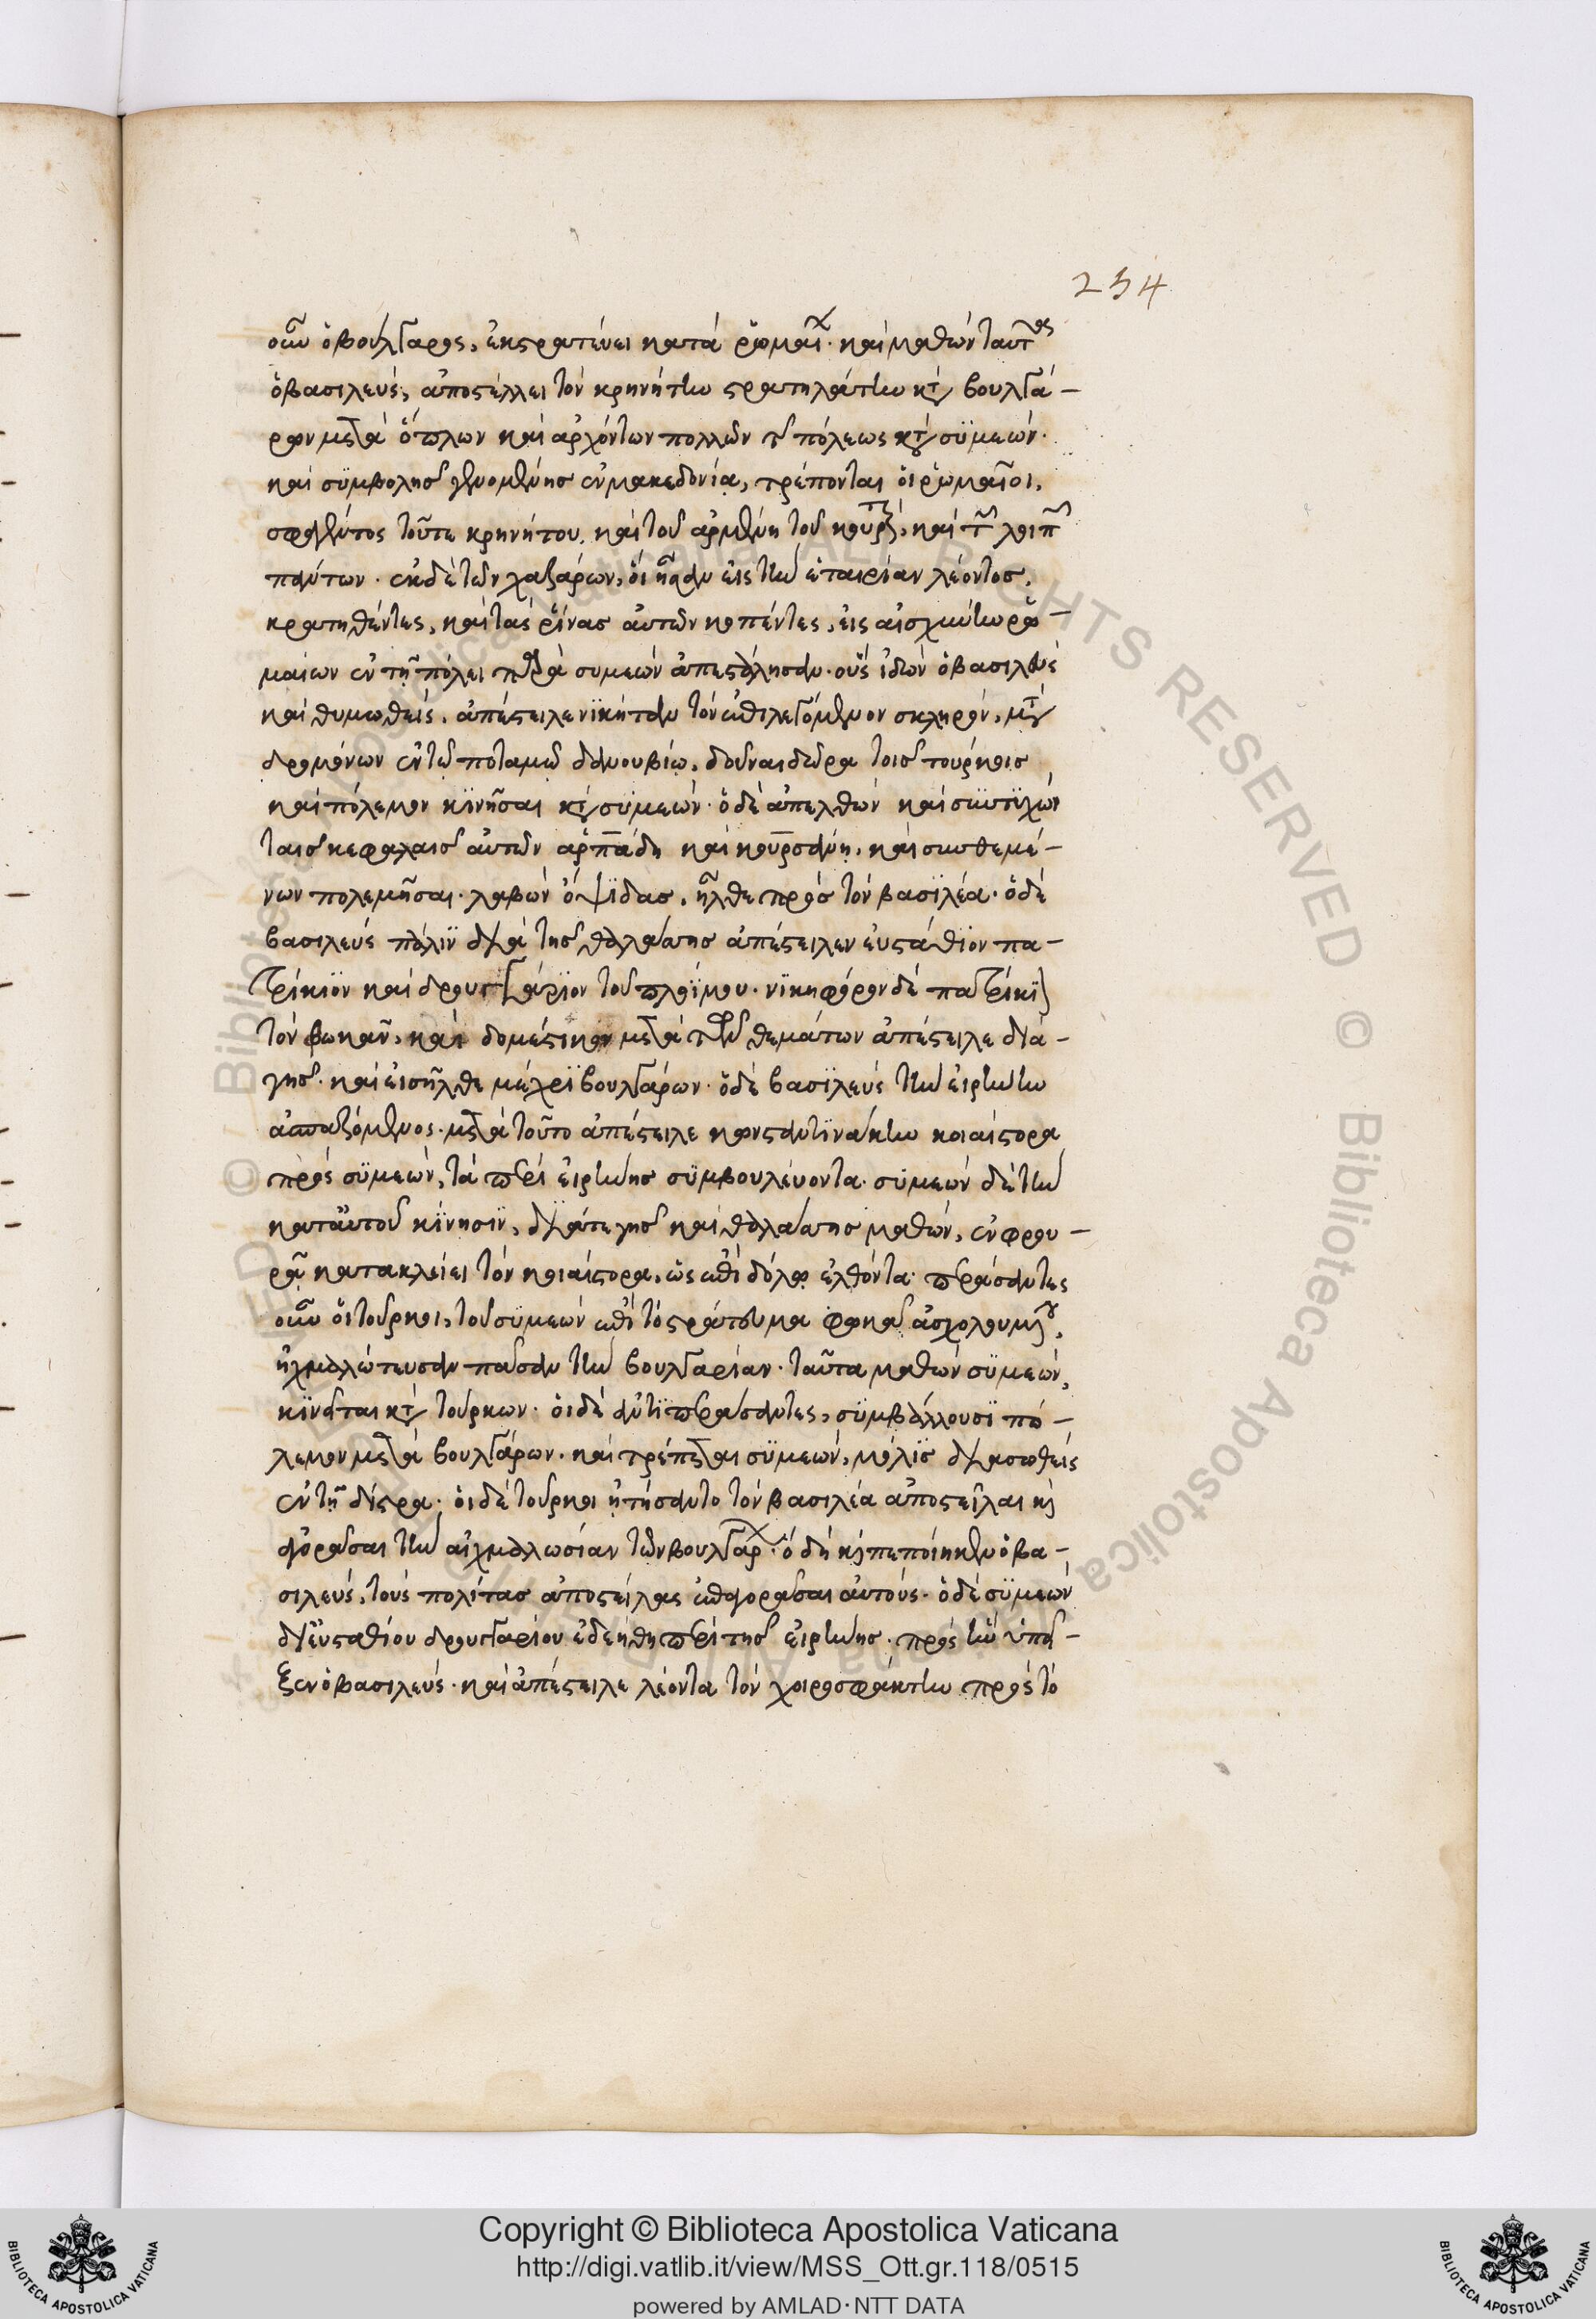 254
οὖν ὁ βούλγαρος, ἐκστρατεύει κατὰ ῥωμαί. καὶ μαθὼν ταῦτ
ὁ βασιλεὺς, ἀποστέλλει τὸν κρηνήτην στρατηλάτην κτ βουλγά-
ρων μετὰ ὅπλων καὶ ἀρχόντων πολλῶν τ πόλεως κτ σϋμεών.
καὶ σϋμβολῆς γενομένης ἐν μακεδονία, τρέπονται οἱ ῥωμαῖοι,
σφαγέντος τοῦτε κρηνήτου, καὶ τοῦ ἀρμένη τοῦ κουρτ, καὶ τ λοιπ
πάντων. ἐκ δὲ τῶν χαζάρων, οἱ ἦσαν εἰς τὴν ἑταιρίαν λέοντος,
κρατηθέντες, καὶ τὰς ῥίνας αὐτῶν κοπέντες, εἰς αἰσχύνην ῥω-
μαίων ἐν τῆ πόλει παρὰ συμεὼν ἀπεστάλησαν. οὓς ἰδὼν ὁ βασιλεὺς
καὶ θυμωθεὶς, ἀπέστειλε νϊκήταν τὸν ἐπιλεγόμενον σκληρόν, μτ
δρομόνων ἐν τῶ ποταμῶ δανουβίω, δοῦναι δῶρα τοῖς τούρκοις
καὶ πόλεμον κϊνῆσαι κτ σϋμεών. ὁ δὲ ἀπελθὼν καὶ σϋντϋχὼν
ταῖς κεφαλαῖς αὐτῶν ἀρπάδη καὶ κουρσάνη, καὶ συνθεμέ-
νων πολεμῆσαι. λαβὼν ὀψϊδας, ἦλθε πρὸς τὸν βασϊλέα. ὁ δὲ
βασιλεὺς πάλϊν διὰ τῆς θαλάσσης ἀπέστειλεν εὐστάθϊον πα-
τρίκϊον καὶ δρουγγάρϊον τοῦ πλοΐμου. νϊκηφόρον δὲ πατρίκϊ
τὸν φωκᾶν, καὶ δομέστικον μετὰ τῶν θεμάτων ἀπέστειλε διὰ-
γῆς. καὶ εἰσῆλθε μέχρϊ βουλγάρων. ὁ δὲ βασϊλεὺς τὴν εἰρήνην
ἀσπαζόμενος. μετὰ τοῦτο ἀπέστειλε κωνσταντϊνάκην κοιαίστορα
πρὸς σϋμεών, τὰ περὶ εἰρήνης σϋμβουλέυοντα. σϋμεὼν δὲ τὴν
κατ αὐτοῦ κϊνησϊν, διά τε γῆς καὶ θαλάσσης μαθών, ἐν φρου-
ρᾶ κατακλείει τὸν κοιαίστορα, ὡς ἐπὶ δόλω ἐλθόντα. περάσαντες
οὖν οἱ τοῦρκοι, τοῦ σϋμεὼν ἐπὶ τὸ στράτευμα φωκᾶ ἀσχολουμέν,
ἠχμαλώτευσαν πᾶσαν τὴν βουλγαρίαν. ταῦτα μαθὼν σϋμεών,
κϊνεῖται κτ τούρκων. οἱ δὲ ἀντϊπεράσαντες, σϋμβάλλουσϊ πό-
λεμον μετὰ βουλγάρων. καὶ τρέπεται σϋμεών, μόλϊς διασωθεὶς
ἐν τῆ δίστρα. οἱ δὲ τοῦρκοι ἠτήσαντο τὸν βασιλέα ἀποστεῖλαι κ
ἀγοράσαι τὴν αἰχμαλωσίαν τῶν βουλγάρ. ὃ δὴ κ πεποίηκεν ὁ βα-
σιλεὺς, τοὺς πολίτας ἀποστείλας ἐπαγοράσαι αὐτούς. ὁ δὲ σϋμεὼν
δι εὐσταθίου δρουγγαρίου ἐδεήθη περὶ τῆς εἰρήνης. πρὸς ἣν ὑπεῖ-
ξεν ὁ βασιλεύς. καὶ ἀπέστειλε λέοντα τὸν χοιροσφάκτην πρὸς τὸ
Copyright © Biblioteca Apostolica Vaticana
http://digi.vatlib.it/view/MSS_Ott.gr.118/0515
powered by AMLAD·NTT DATA